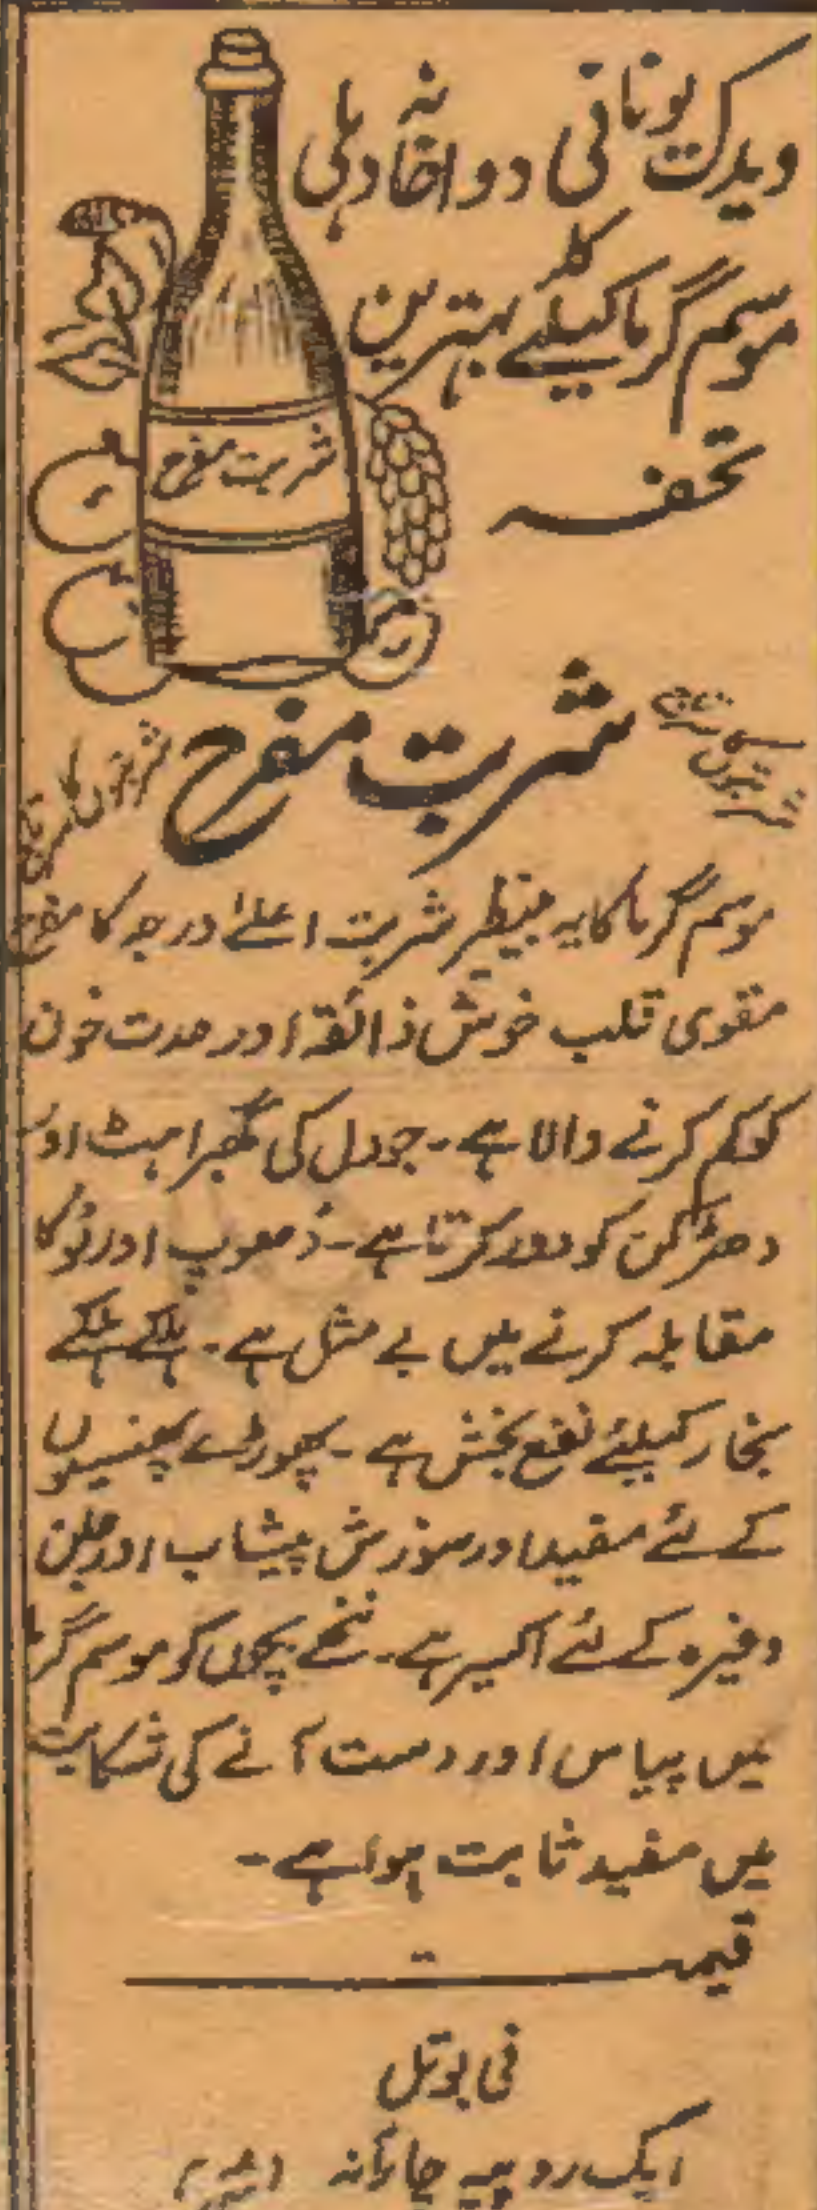 ویدک یونانی دواخانہ دہلی
کا
موسم گرما کیلئے بہترین
تحفہ
شربت مفرح
شربتوں کا
شربت مفرح
شربتوں کا سرتاج
موسم گرما کا یہ بینظیر شربت اعلےٰ درجہ کا مفرح
مقوی قلب خوش ذائقہ اور حدت خون
کو کم کرنے والا ہے۔ جو دل کی گھبراہٹ اور
دھڑکن کو دور کرتا ہے۔ دھوپ اور لُو کا
مقابلہ کرنے میں بے مثل ہے۔ ہلکے ہلکے
بخار کیلئے نفع بخش ہے۔ پھوڑے پھنسیوں
کے لئے مفید اور سوزش پیشاب اور جلن
وغیرہ کے لئے اکسیر ہے۔ ننھے بچوں کو موسم گرما
میں پیاس اور دست آنے کی شکایت
میں مفید ثابت ہوا ہے۔
قیمت
فی بوتل
ایک روپیہ چار آنہ